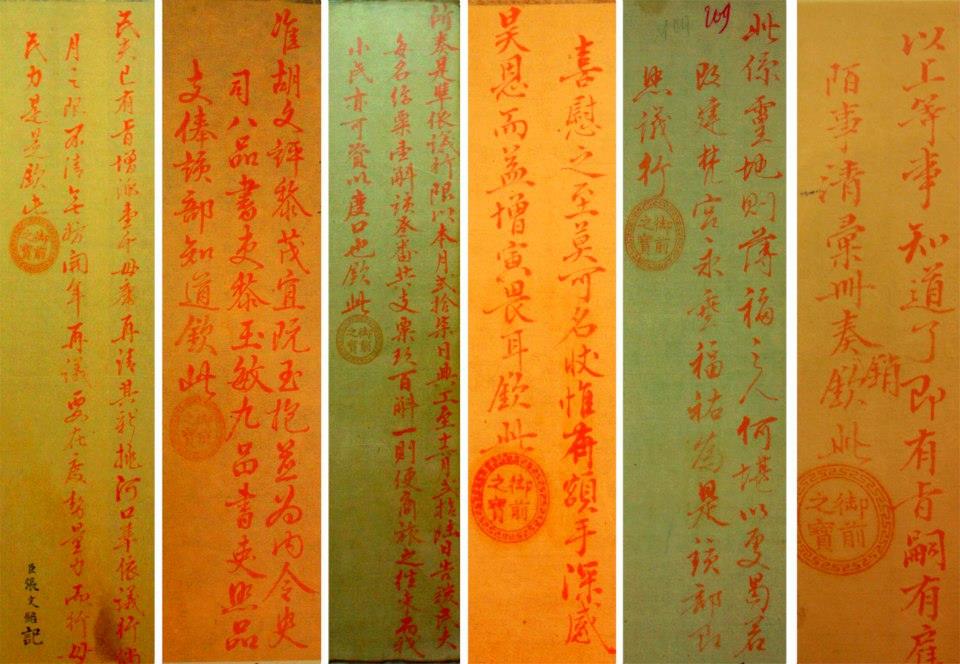 民夫已有旨增派壹千毋庸再請其新挑河口準依議行
月之限不清無妨開年再議要在度勢量力而行毋
民力是是欽此
御前之寶
臣張文記
准胡文評黎茂宜阮玉抱並為內令史
司八品書吏黎玉敏九品書吏照品
支俸該部知道欽此
所奏是準依議行限以本月貳拾柒日興工至十一月貳拾陸日告竣民夫
每名俸粟壹斛該叁番共支粟玖百斛一則便商旅之往來而我
小民亦可資以度口也欽此
御前之寶
喜慰之至莫可名狀惟有額手深感
昊恩而益增寅畏耳欽此
御前之寶
209
此係靈地則薄福之人何堪以更曷若
改建梵宮永垂福祜為是該部即
照議行
御前之寶
以上等事知道了即有旨嗣有雇
陌事清彙冊奏銷欽此
御前之寶